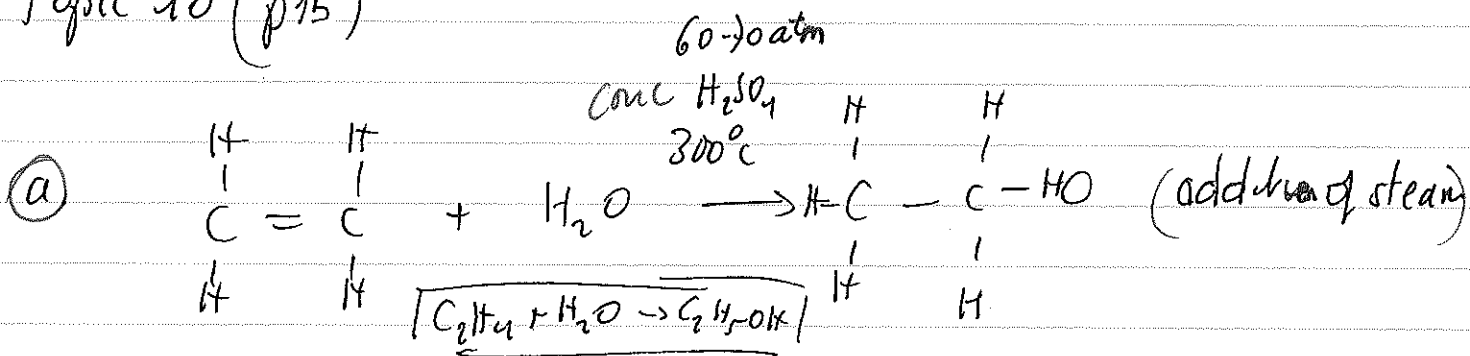 Topic 10 (p15)
60-70 atm
conc H₂SO₄
300°C
H H H H
(a) C = C + H₂O → H-C - C - HO (addition of steam)
H H H H
C₂H₄ + H₂O → C₂H₅-OH